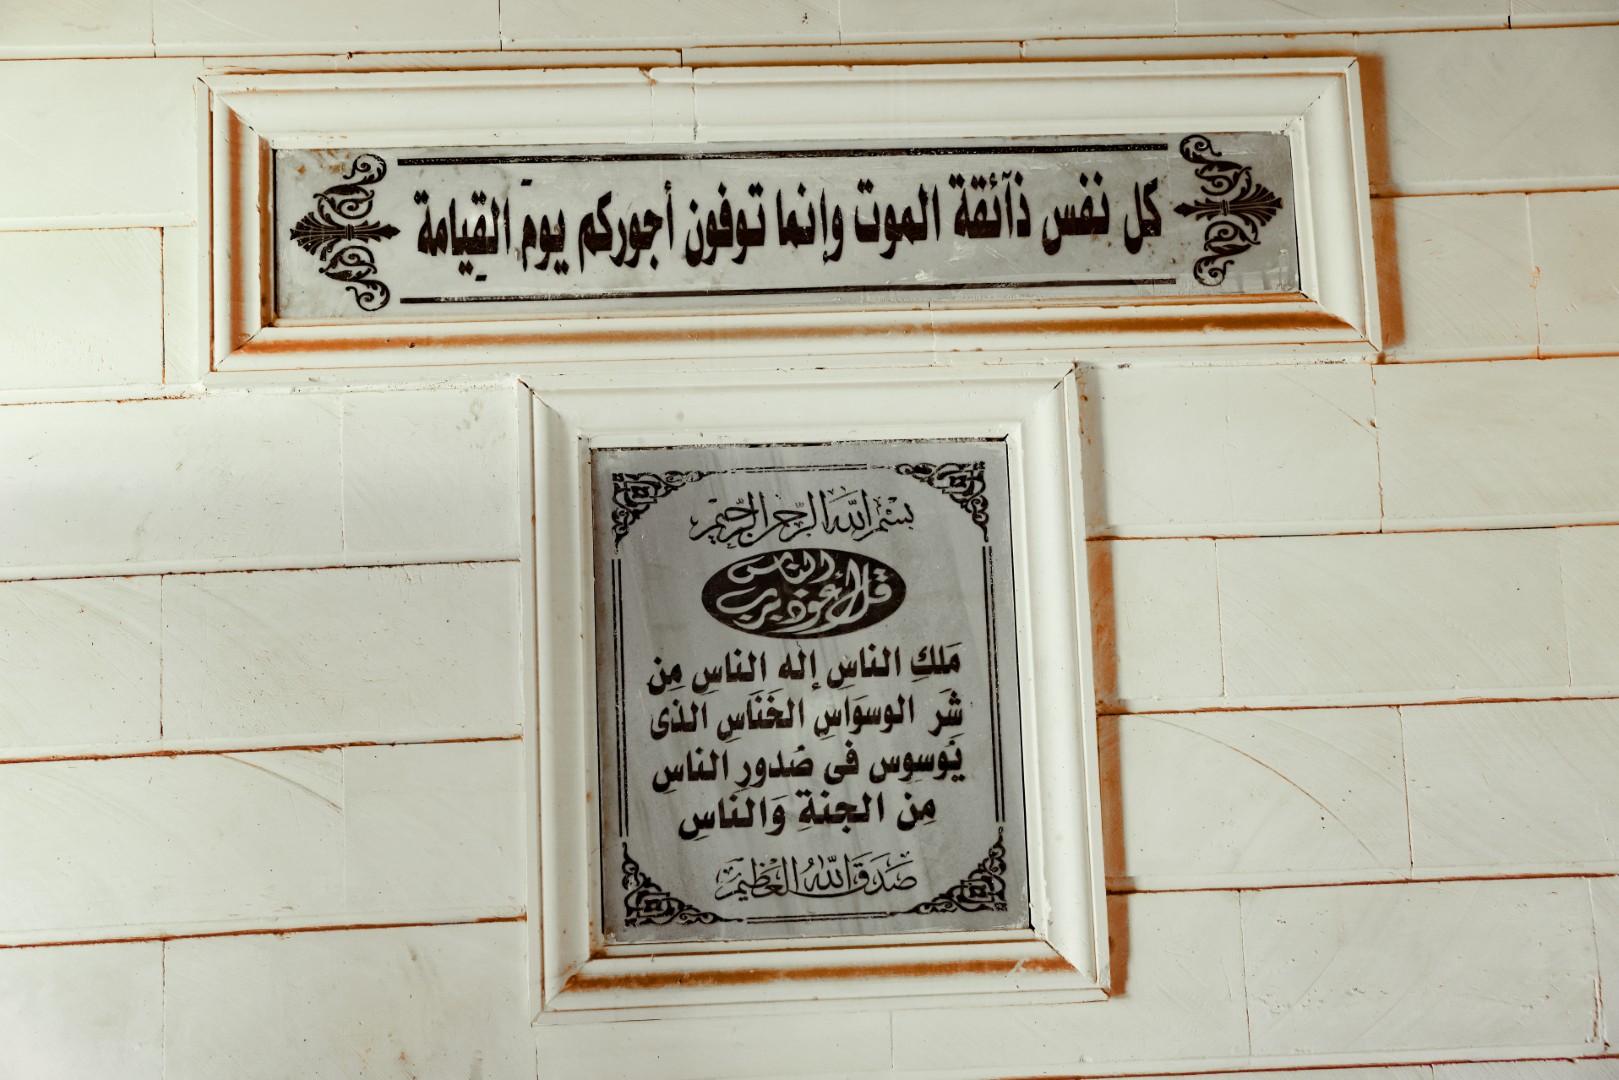 كل نفس ذآئقة الموت وإنما توفون أجوركم يومَ القِيامة
بسم الله الرحمن الرحيم
قل أعوذ برب الناس
مَلكِ الناسِ إله الناسِ مِن
شَر الوسوَاسِ الخَنَاسِ الذى
يُوسوِس فى صُدورِ الناسِ
مِن الجنةِ وَالنَاسِ
صَدَقَ اللهُ العَظيم